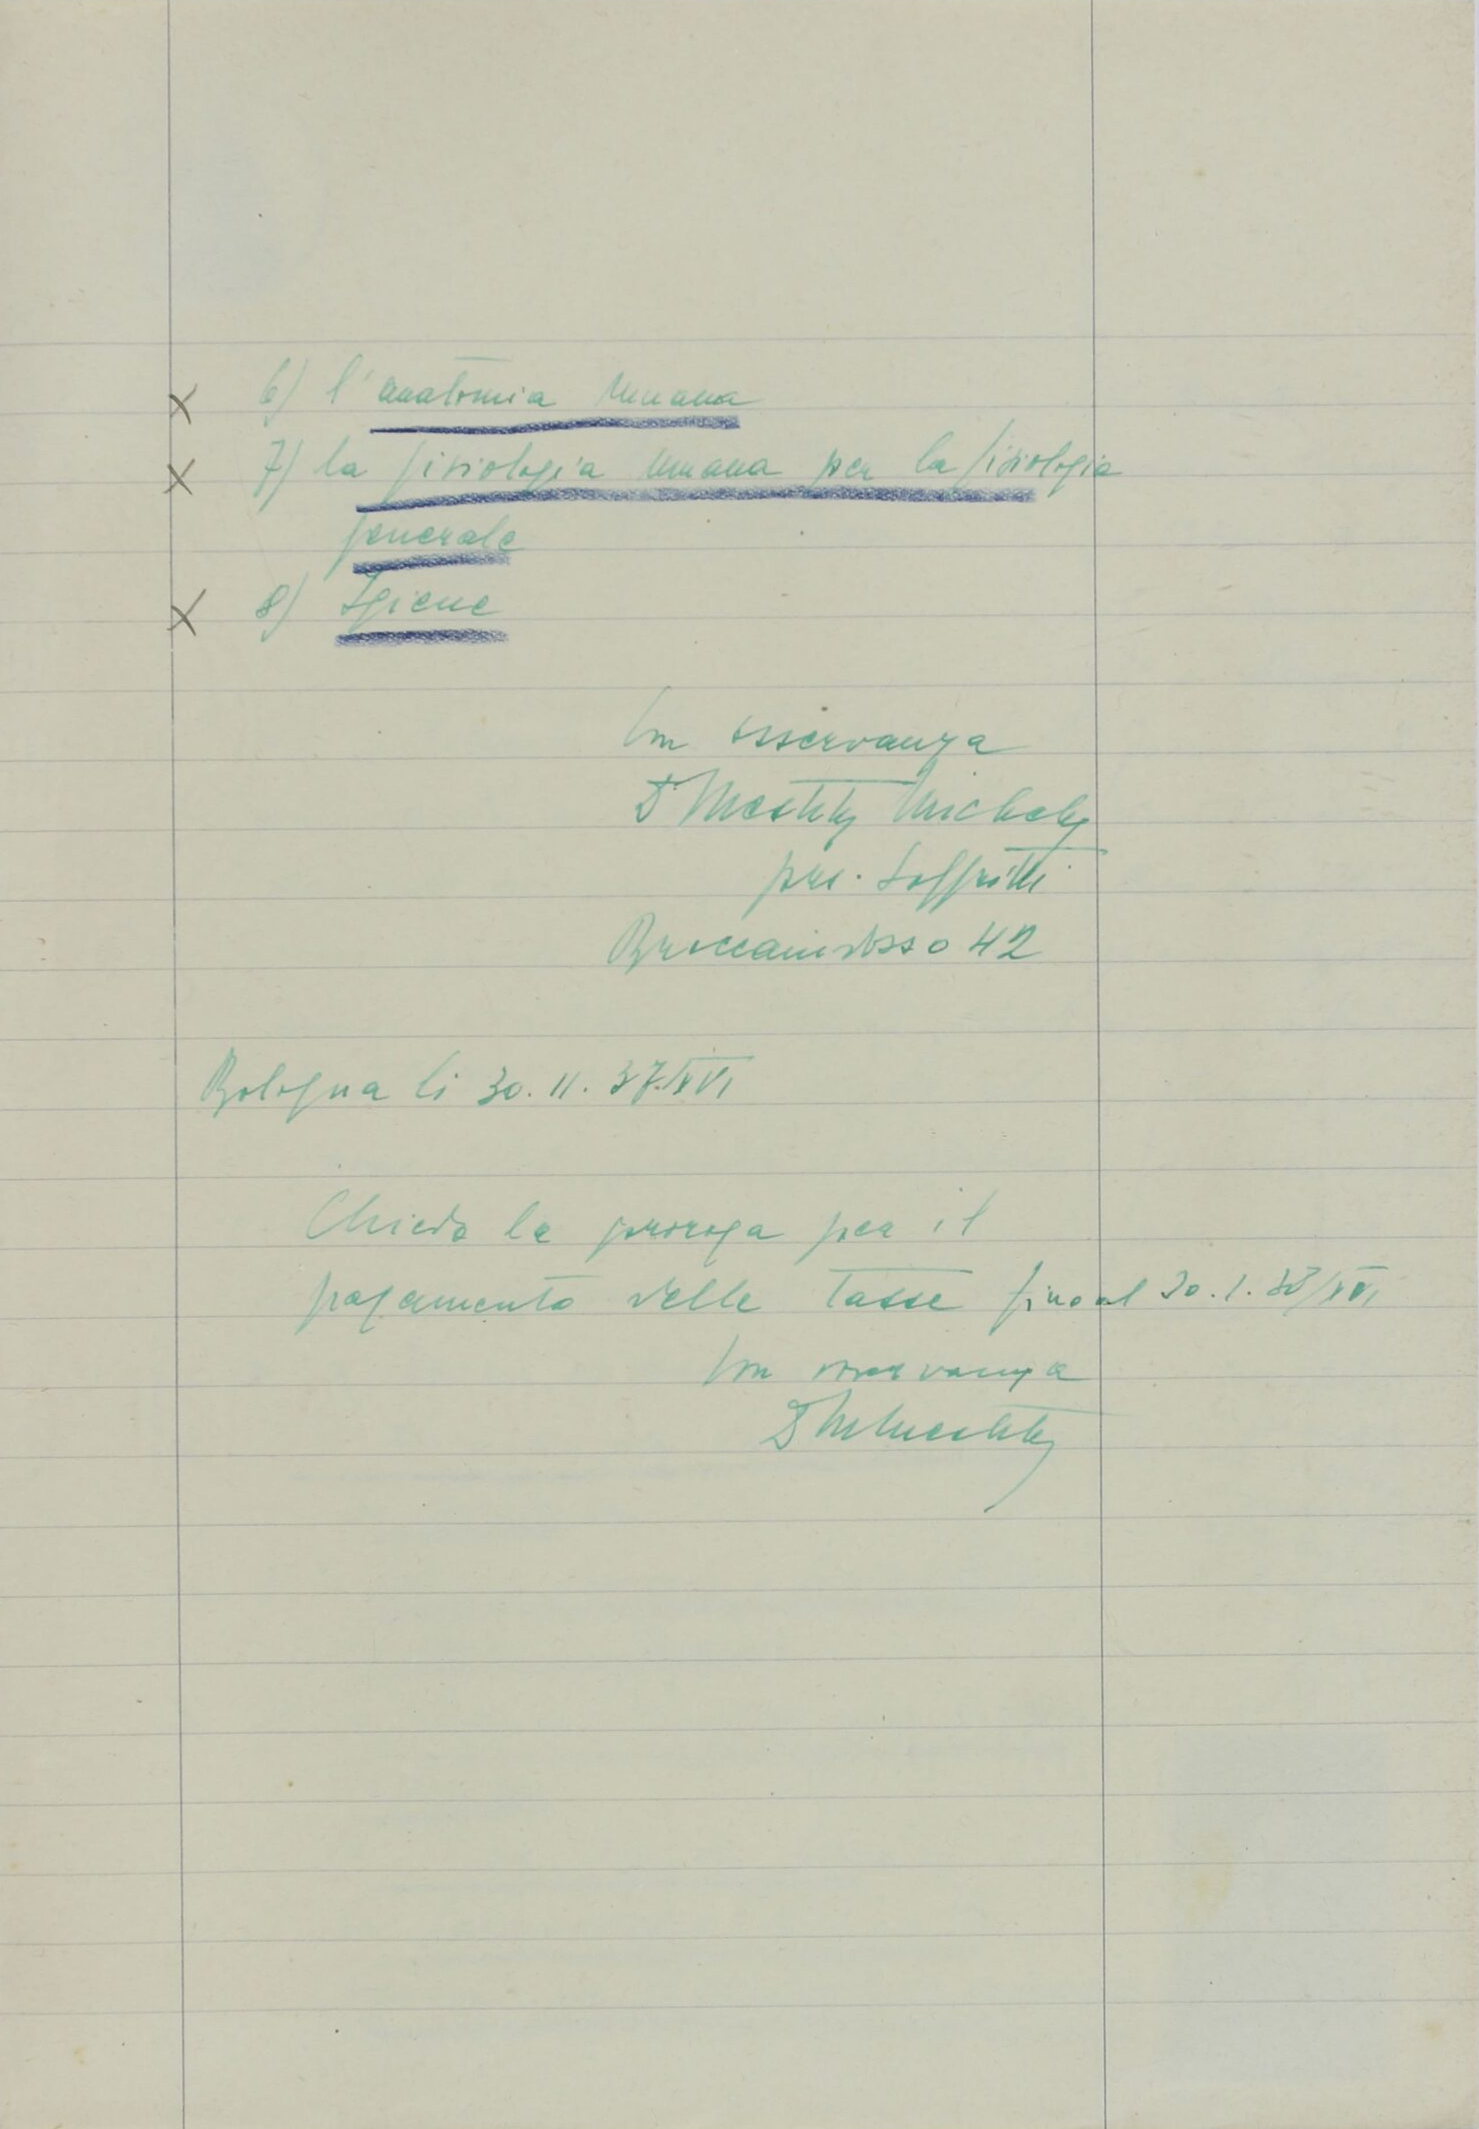 6) l'anatomia umana
7) la fisiologia umana per la fisiologia
generale
8) Igiene
Con osservanza
Dr
pre. Soffritti
Broccaindosso 42
Bologna li 30.11.37/XVI
Chiedo la proroga per il
pagamento delle tasse fino al 30.1.38/XVI
Con osservanza
Dr